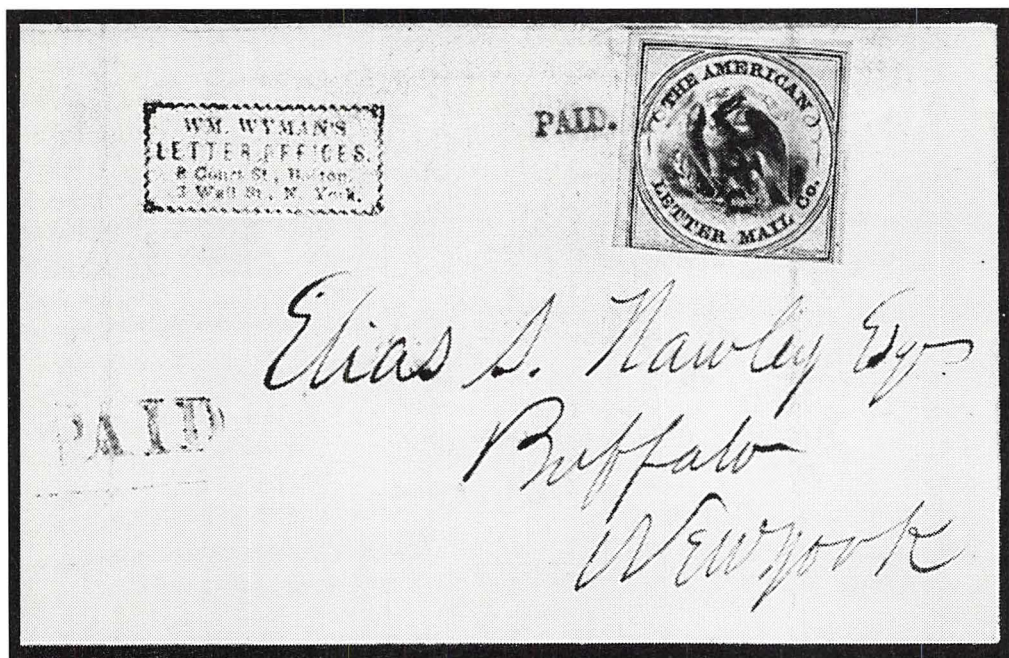 WM. WYMAN'S
LETTER OFFICES.
8 Court St., Boston,
3 Wall St., N. York.
PAID.
THE AMERICAN
LETTER MAIL Co.
Elias S. Hawley Esq.
Buffalo
New york
PAID